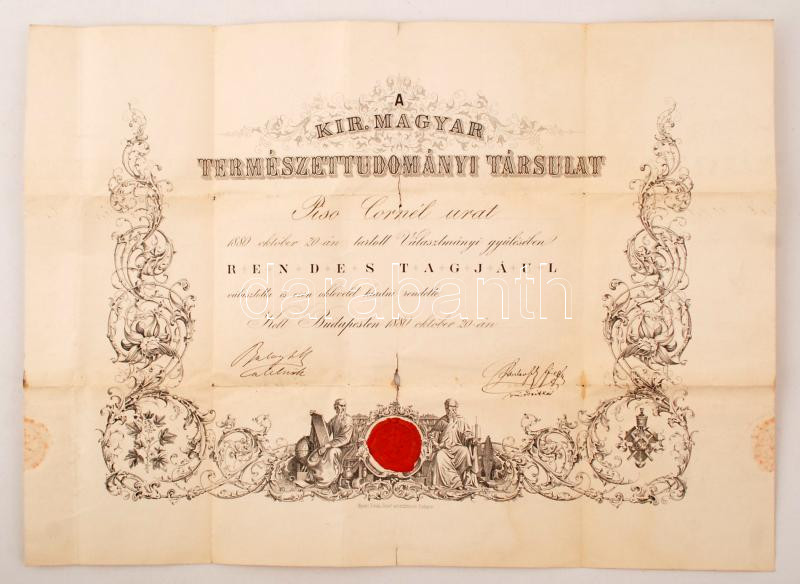 A
KIR. MAGYAR
TERMÉSZETTUDOMÁNYI TÁRSULAT
Piso Cornél urat
1880 október 20-án tartott Választmányi gyülésében
RENDES TAGJÁUL
választotta és ezen oklevelet kiadni rendelte
Kelt Budapesten 1880 október 20-án
darabanth